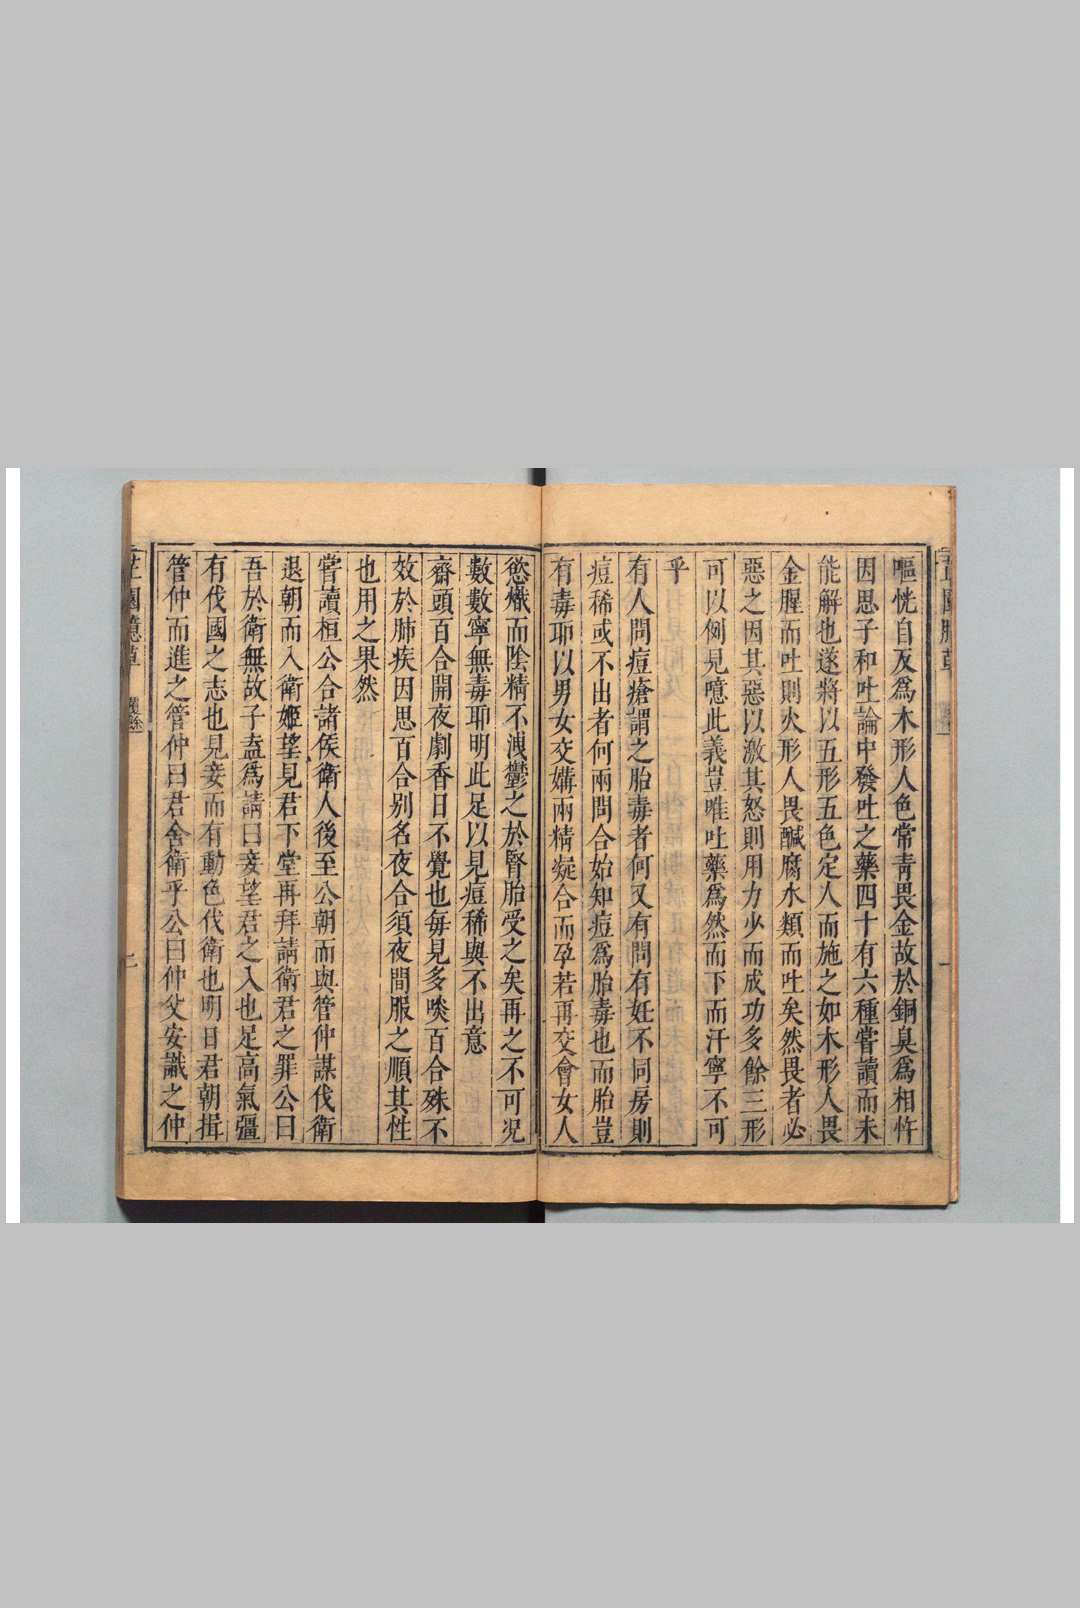 嘔恍自反爲木形人色常靑畏金故於銅臭爲相忤
因思子和吐論中發吐之藥四十有六種嘗讀而未
能解也遂將以五形五色定人而施之如木形人畏
金腥而吐則火形人畏鹹腐水類而吐矣然畏者必
惡之因其惡以激其怒則用力少而成功多餘三形
可以例見噫此義豈唯吐藥爲然而下而汗寧不可
乎
有人問痘瘡謂之胎毒者何又有問有妊不同房則
痘稀或不出者何兩問合始知痘爲胎毒也而胎豈
有毒耶以男女交媾兩精凝合而孕若再交會女人
慾熾而陰精不洩鬱之於腎胎受之矣再之不可况
數數寧無毒耶明此足以見痘稀與不出意
齋頭百合開夜劇香日不覺也每見多啖百合殊不
效於肺疾因思百合别名夜合須夜間服之順其性
也用之果然
嘗讀桓公合諸侯衛人後至公朝而與管仲謀伐衛
退朝而入衛姬望見君下堂再拜請衛君之罪公曰
吾於衛無故子盍爲請曰妾望君之入也足高氣彊
有伐國之志也見妾而有動色伐衛也明日君朝揖
管仲而進之管仲曰君舍衛乎公曰仲父安識之仲
二